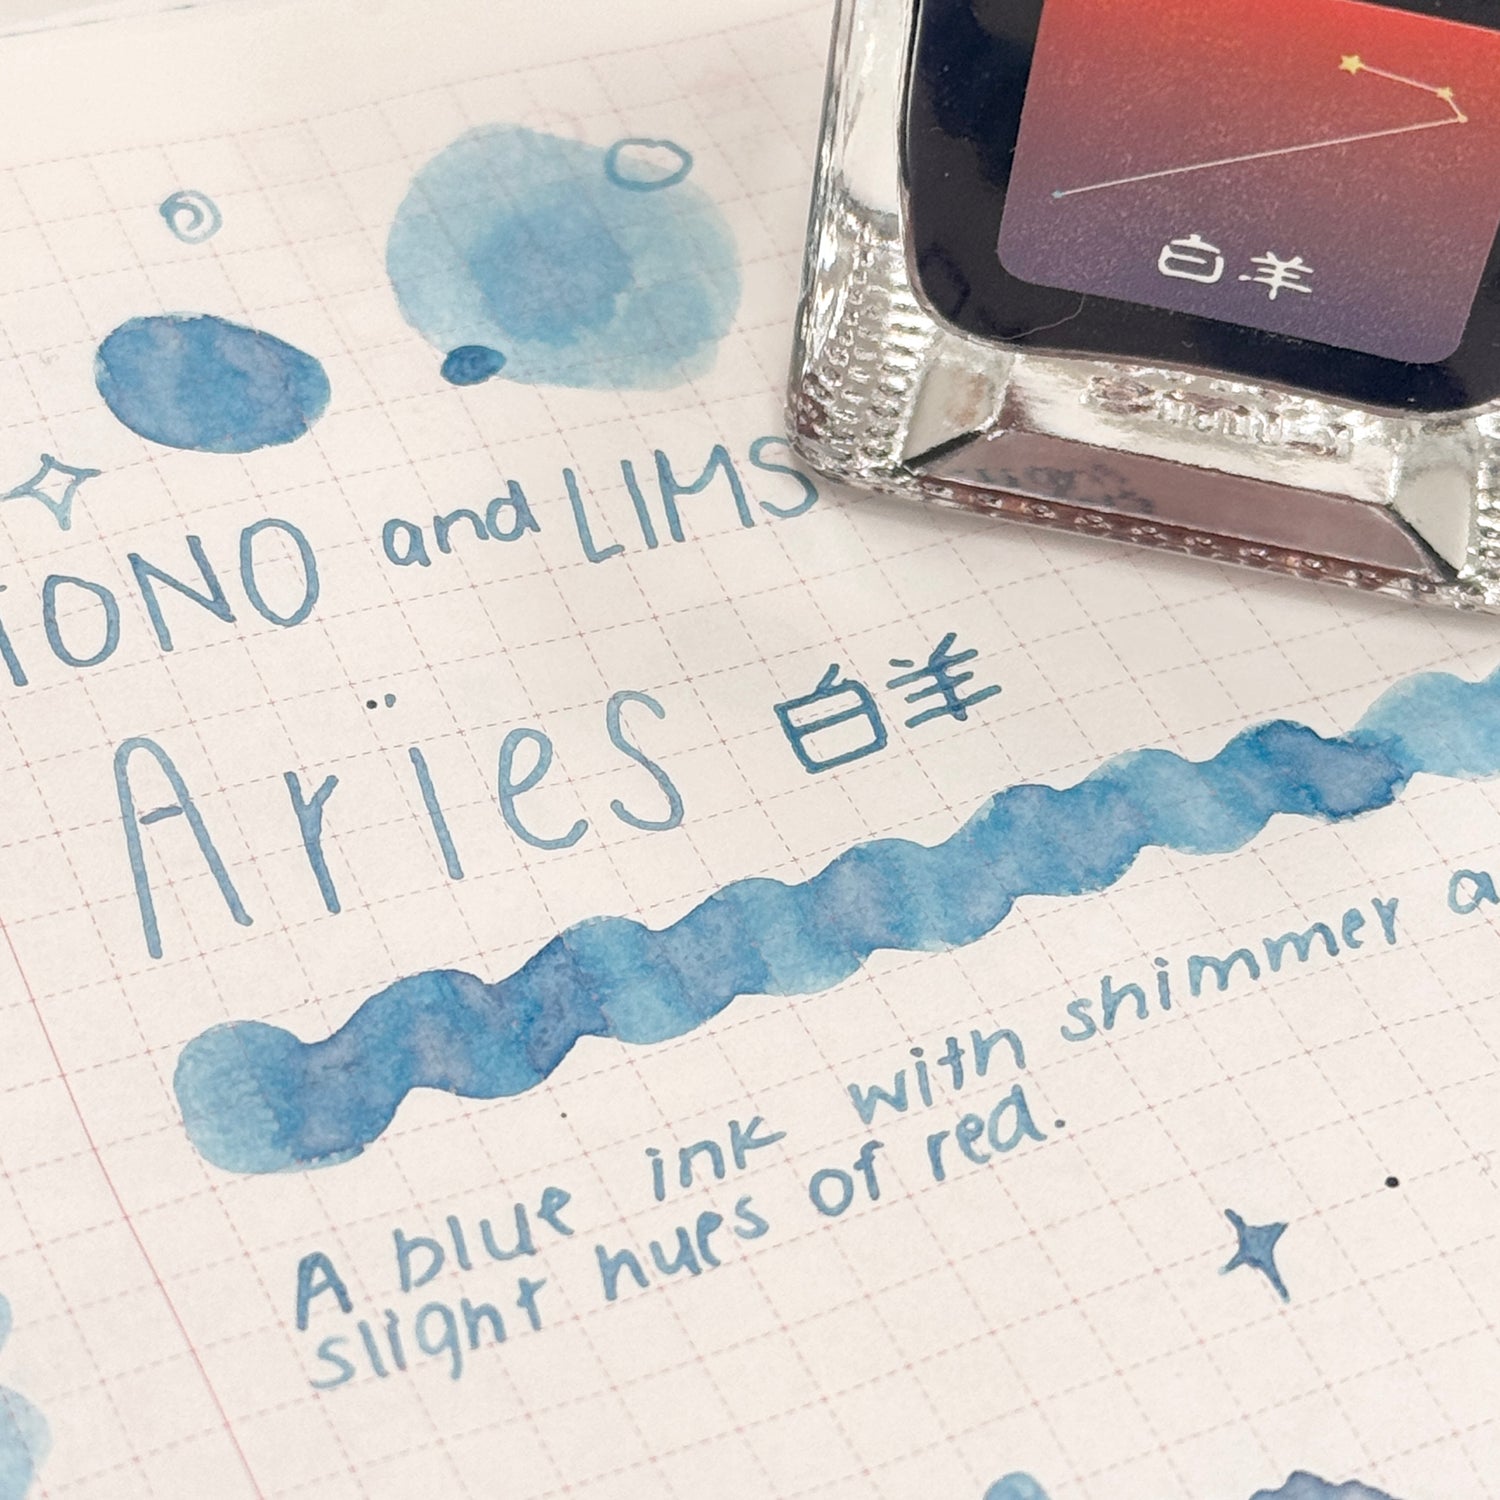 白羊
TONO and LIMS
Aries 白羊
A blue ink with shimmer a
slight hues of red.